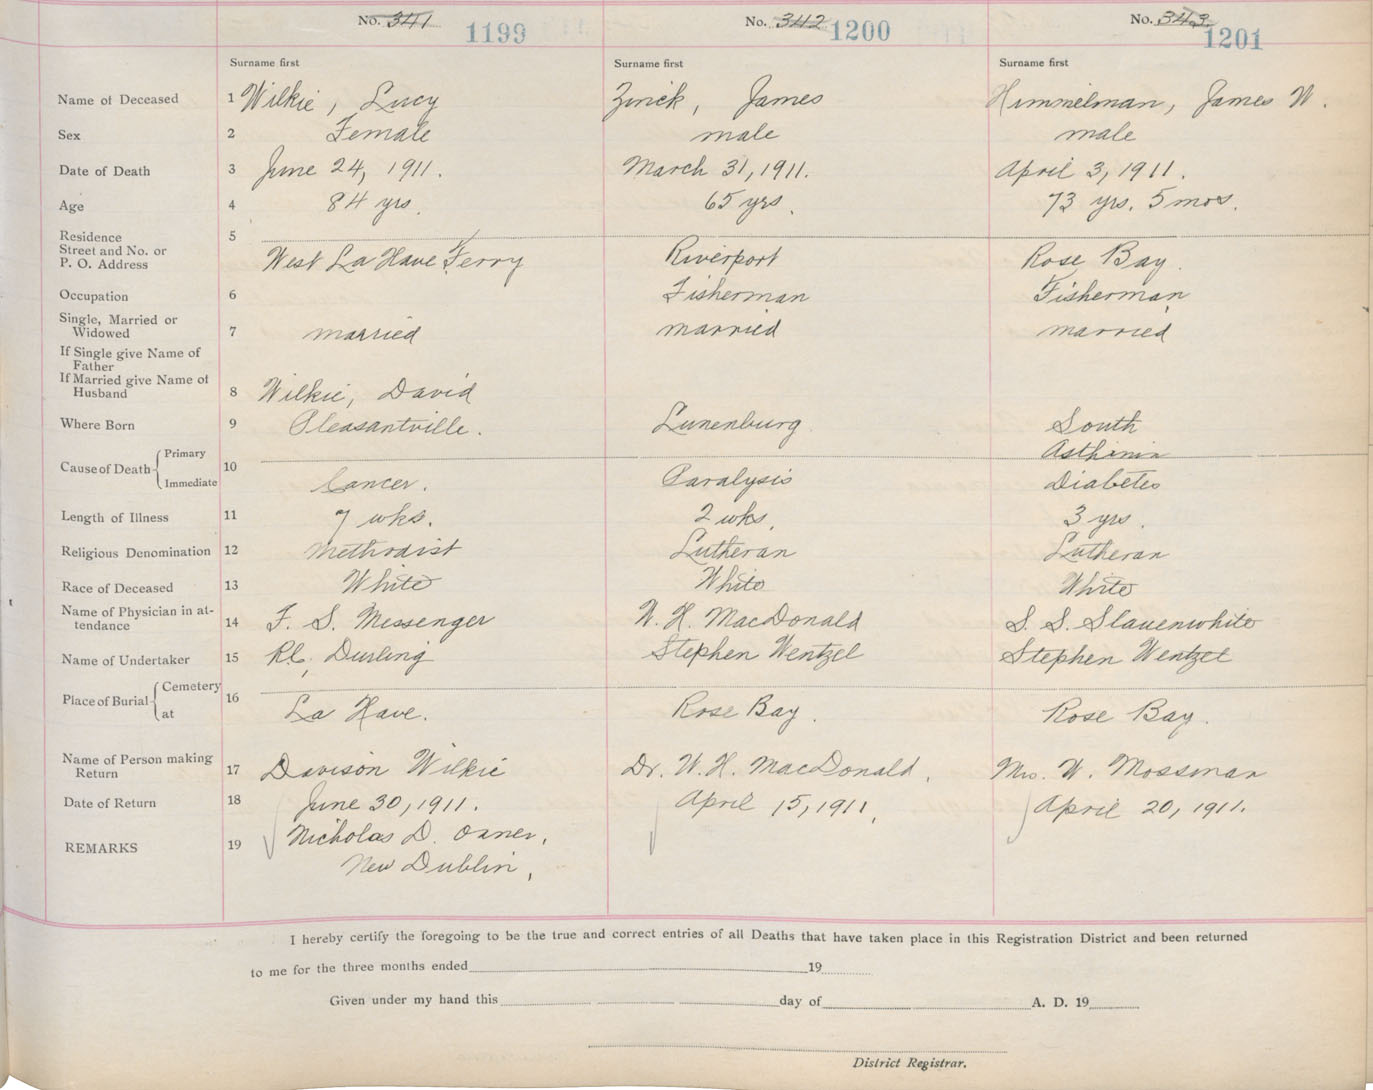 No. 341 1199 No. 342 1200 No. 343 1201
Surname first Surname first Surname first
Name of Deceased 1 Wilkie, Lucy Zinck, James Himmelman, James W.
Sex 2 Female male male
Date of Death 3 June 24, 1911. March 31, 1911. April 3, 1911.
Age 4 84 yrs. 65 yrs. 73 yrs. 5 mos.
Residence 5
Street and No. or
P. O. Address West La Have Ferry Riverport Rose Bay.
Occupation 6 Fisherman Fisherman
Single, Married or
Widowed 7 married married married
If Single give Name of
Father
If Married give Name of
Husband 8 Wilkie, David
Where Born 9 Pleasantville. Lunenburg South
Cause of Death Primary 10 Asthinia
Immediate Cancer. Paralysis Diabetes
Length of Illness 11 7 wks. 2 wks. 3 yrs.
Religious Denomination 12 Methodist Lutheran Lutheran
Race of Deceased 13 White White White
Name of Physician in at-
tendance 14 F. S. Messenger W. H. MacDonald S. S. Slauenwhite
Name of Undertaker 15 R.C. Durling Stephen Wentzel Stephen Wentzel
Place of Burial Cemetery 16
at La Have. Rose Bay. Rose Bay.
Name of Person making
Return 17 Davison Wilkie Dr. W. H. MacDonald. Mrs. W. Mossman
Date of Return 18 June 30, 1911. April 15, 1911. April 20, 1911.
REMARKS 19 Nicholas D.
New Dublin.
I hereby certify the foregoing to be the true and correct entries of all Deaths that have taken place in this Registration District and been returned
to me for the three months ended 19
Given under my hand this day of A. D. 19
District Registrar.